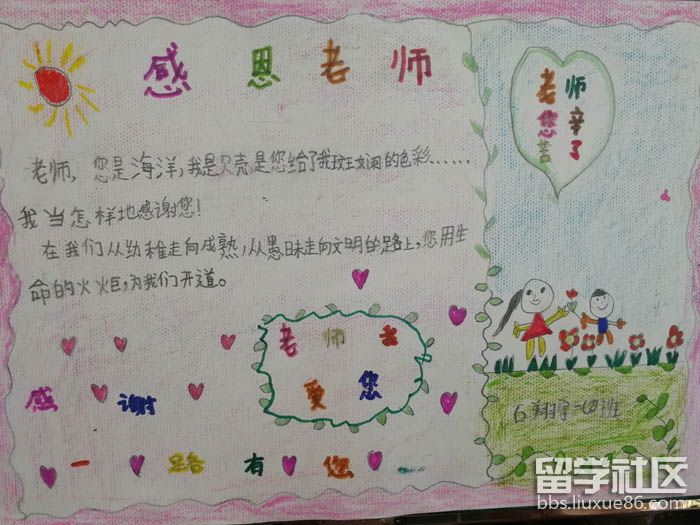 感恩老师
老师，您是海洋，我是贝壳，是您给了我斑斓的色彩……
我当怎样地感谢您！
在我们从幼稚走向成熟，从愚昧走向文明的路上，您用生
命的火炬，为我们开道。
老师
您辛
苦了
老师我
爱您
感谢
一路有您
石翔宇二四班
留学社区
bbs.liuxue86.com